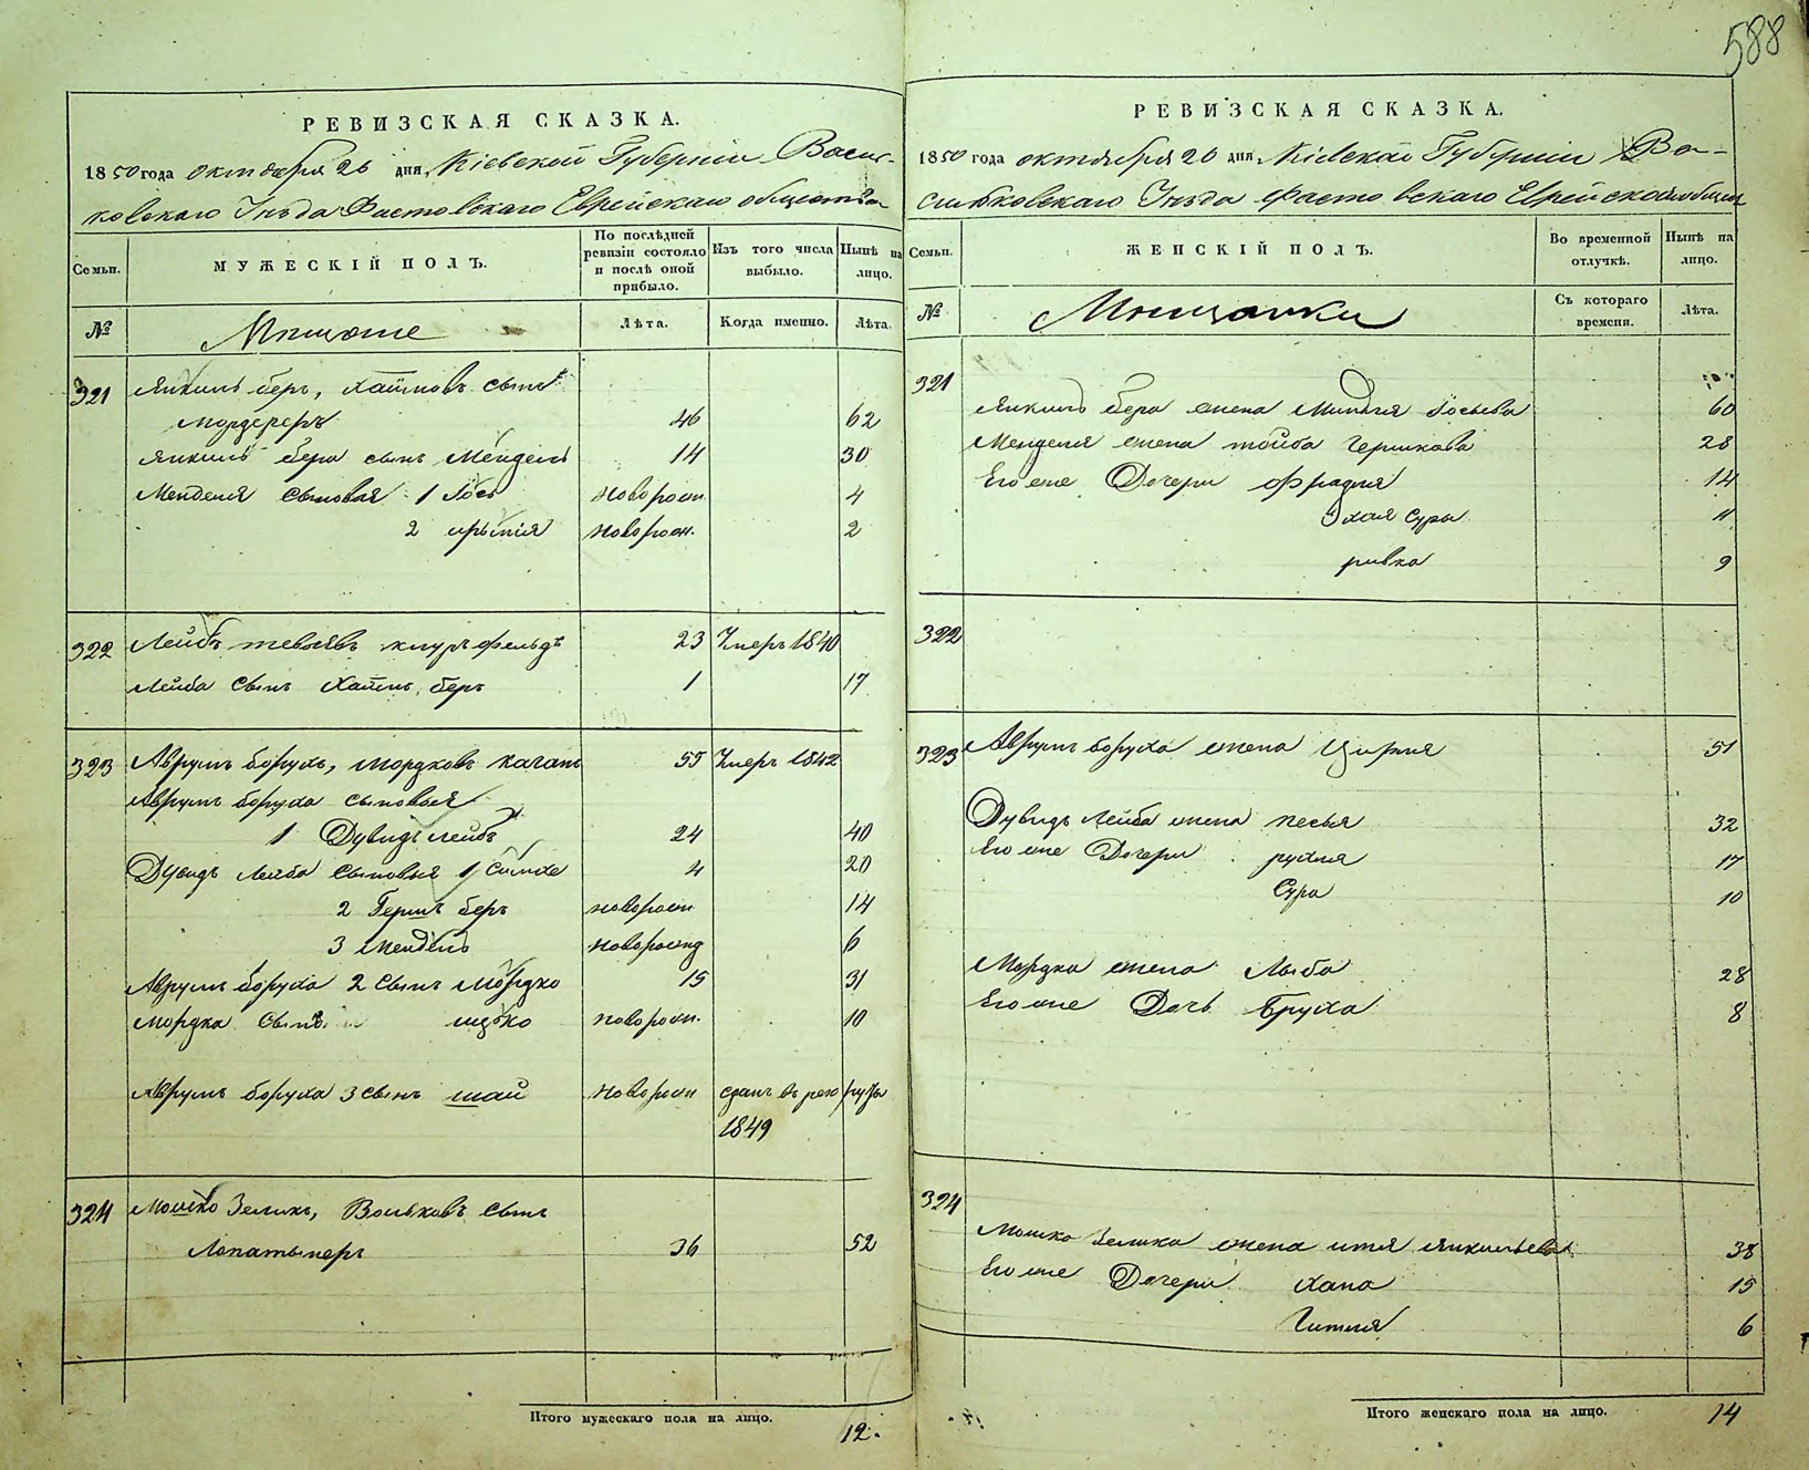 588
РЕВИЗСКАЯ СКАЗКА.
1850 года октября 26 дня, Кіевской Губерніи Васил-
ковскаго Уезда Фастовскаго Еврейскаго общества
Семьи. МУЖЕСКІЙ ПОЛЪ. По послѣдней ревизіи состояло и послѣ оной прибыло. Изъ того числа выбыло. Нынѣ на лицо.
№ Мещане Лѣта. Когда именно. Лѣта.
321 Янкиль беръ, Хаимовъ сынъ
46 62
Янкиль бера сынъ Мендель 14 30
Менделя сыновья 1 Іось новорожд. 4
2 новорож. 2
322 Лейбъ тевьявъ 23 Умеръ 1840
Лейба сынъ Хаимъ беръ 1 17
323 Аврумъ борухъ, Мордковъ каганъ 55 Умеръ 1842
Аврумъ боруха сыновья
1 Дувидъ лейбъ 24 40
Дувидъ лейба сыновья 1 Симха 4 20
2 Гершъ беръ новорож 14
3 Мендель новорожд 6
Аврумъ боруха 2 сынъ Мордко 15 31
Мордка сынъ ицко новорож. 10
Аврумъ боруха 3 сынъ шай новорож сданъ въ рекруты
1849
324 Мошко Зеликъ, Вольковъ сынъ
Лопатынеръ 36 52
Итого мужескаго пола на лицо. 12.
РЕВИЗСКАЯ СКАЗКА.
1850 года октября 26 дня, Кіевской Губерніи Ва-
сильковскаго Уезда Фастовскаго Еврейскаго общест
Семьи. ЖЕНСКІЙ ПОЛЪ. Во временной отлучкѣ. Нынѣ на лицо.
№ Мещанки Съ котораго времени. Лѣта.
321
Янкиль бера жена Миндля Іосьева 60
Менделя жена тойба Гершкова 28
Его же Дочери Фрадля 14
хая Сура 11
ривка 9
322
323 Аврумъ боруха жена Цирля 51
Дувидъ лейба жена песья 32
Его же Дочери рухля 17
Сура 10
Мордка жена Лыба 28
Его же Дочь Бруха 8
324
Мошко Зелика жена итя Янкильева 38
Его же Дочери Хана 15
Гитля 6
Итого женскаго пола на лицо. 14